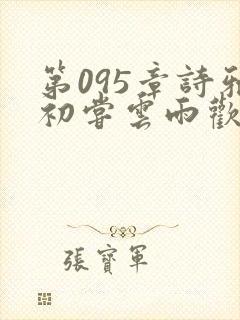 第095章詩雅
初嘗雲雨歡
張寶軍